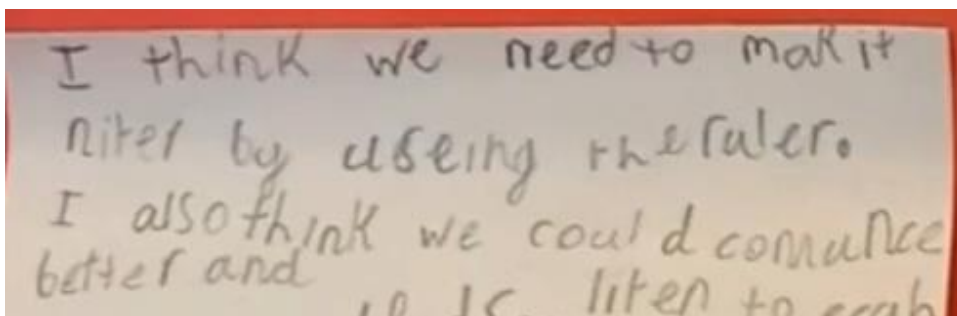 I think we need to mak it
niter by useing the ruler.
I also think we could comunce
better and
liten to